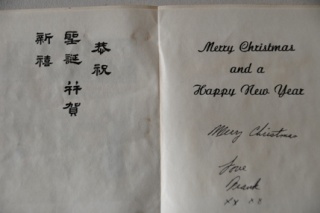 恭祝
聖誕 賀
新禧
Merry Christmas
and a
Happy New Year
Merry Christmas
Love
Frank